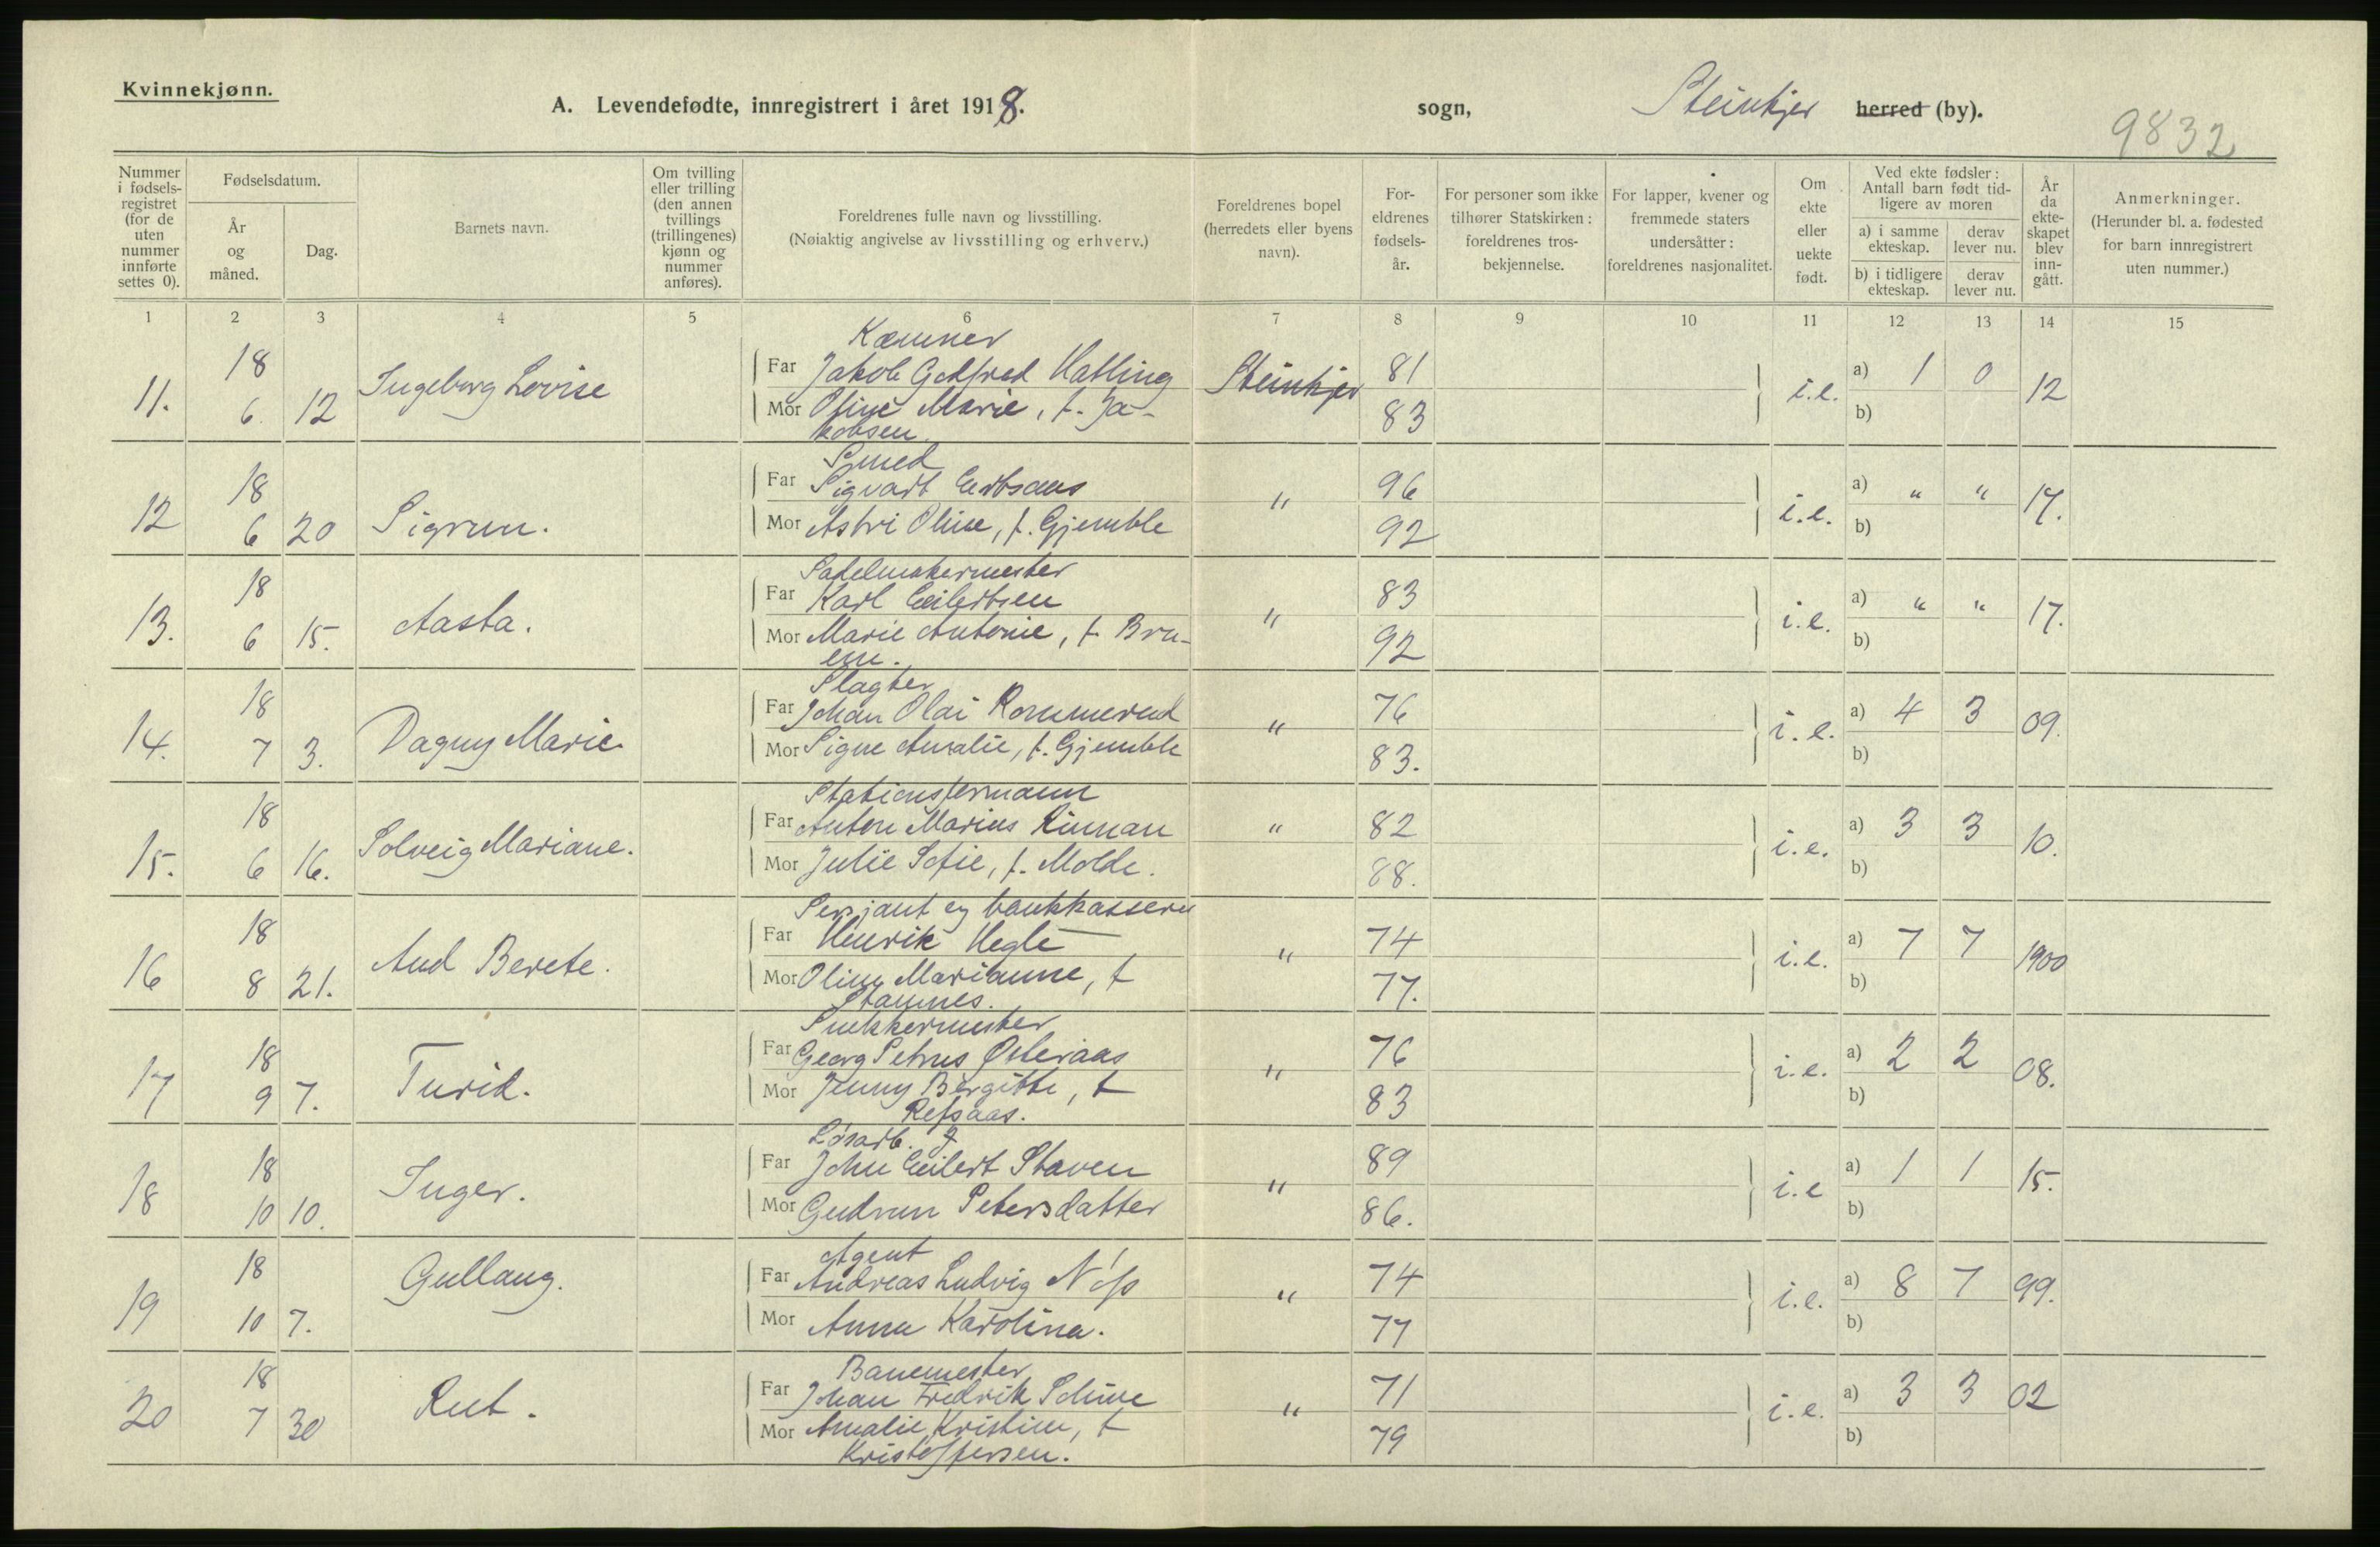 Kvinnekjønn.
A. Levendefødte, innregistrert i året 1918. sogn, Steinkjer herred (by).
9832
Nummer i fødsels-registret (for de uten nummer innførte settes 0). Fødselsdatum. År og måned. Dag. Barnets navn. Om tvilling eller trilling (den annen tvillings (trillingenes) kjønn og nummer anføres). Foreldrenes fulle navn og livsstilling. (Nøiaktig angivelse av livsstilling og erhverv.) Foreldrenes bopel (herredets eller byens navn). For-eldrenes fødsels-år. For personer som ikke tilhører Statskirken: foreldrenes tros-bekjennelse. For lapper, kvener og fremmede staters undersåtter: foreldrenes nasjonalitet. Om ekte eller uekte født. Ved ekte fødsler: Antall barn født tid-ligere av moren a) i samme ekteskap. derav lever nu. b) i tidligere ekteskap. derav lever nu. År da ekte-skapet blev inn-gått. Anmerkninger. (Herunder bl. a. fødested for barn innregistrert uten nummer.)
1 2 3 4 5 6 7 8 9 10 11 12 13 14 15
Kæmner
18 Far Jakob Godfred Hatling Steinkjer 81 a) 1 0
11. 6. 12 Ingeborg Lovise Mor Oline Marie, f. Ja- 83 i.e. b) 12
kobsen.
Smed
18 Far Sigvart 96 a) " "
12 6 20 Sigrun. Mor Astri Oline, f. Gjemble " 92 i.e. b) 17.
Sadelmakermester
18 Far Karl Eilertsen 83 a) " "
13. 6 15. Aasta. Mor Marie Antonie, f. Bru- " 92 i.e. b) 17.
em.
Slagter
18 Far Johan Olai Rommerud 76 a) 4 3
14. 7 3. Dagny Marie. Mor Signe Amalie, f. Gjemble " 83. i.e. b) 09.
Stationsformann
18 Far Anton Marius Rinnan " 82 a) 3 3
15. 6 16. Solveig Mariane. Mor Julie Sofie, f. Molde. 88. i.e. b) 10.
Sersjant og bankkasserer
18 Far Henrik Hegle 74 a) 7 7
16 8 21. Aud Berete. Mor Oline Marianne, f " 77. i.e. b) 1900
Stamnes.
Snekkermester
18 Far Georg Petrus Østeraas 76 a) 2 2
17 9 7. Turid. Mor Jenny Bergitte, f " 83 i.e. b) 08.
Refsaas.
Løsarb.
18 Far John Eilert Staven 89 a) 1 1
18 10 10. Inger. Mor Gudrun Petersdatter " 86. i.e b) 15.
Agent
18 Far Andreas Ludvig 74 a) 8 7
19 10 7. Gullaug. Mor Anna Karolina. " 77 i.e. b) 99.
Banemester
18 Far Johan Fredrik Schive 71 a) 3 3 02
20 7 30 Rut. Mor Amalie Kristine, f " 79 i.e. b)
Kristoffersen.